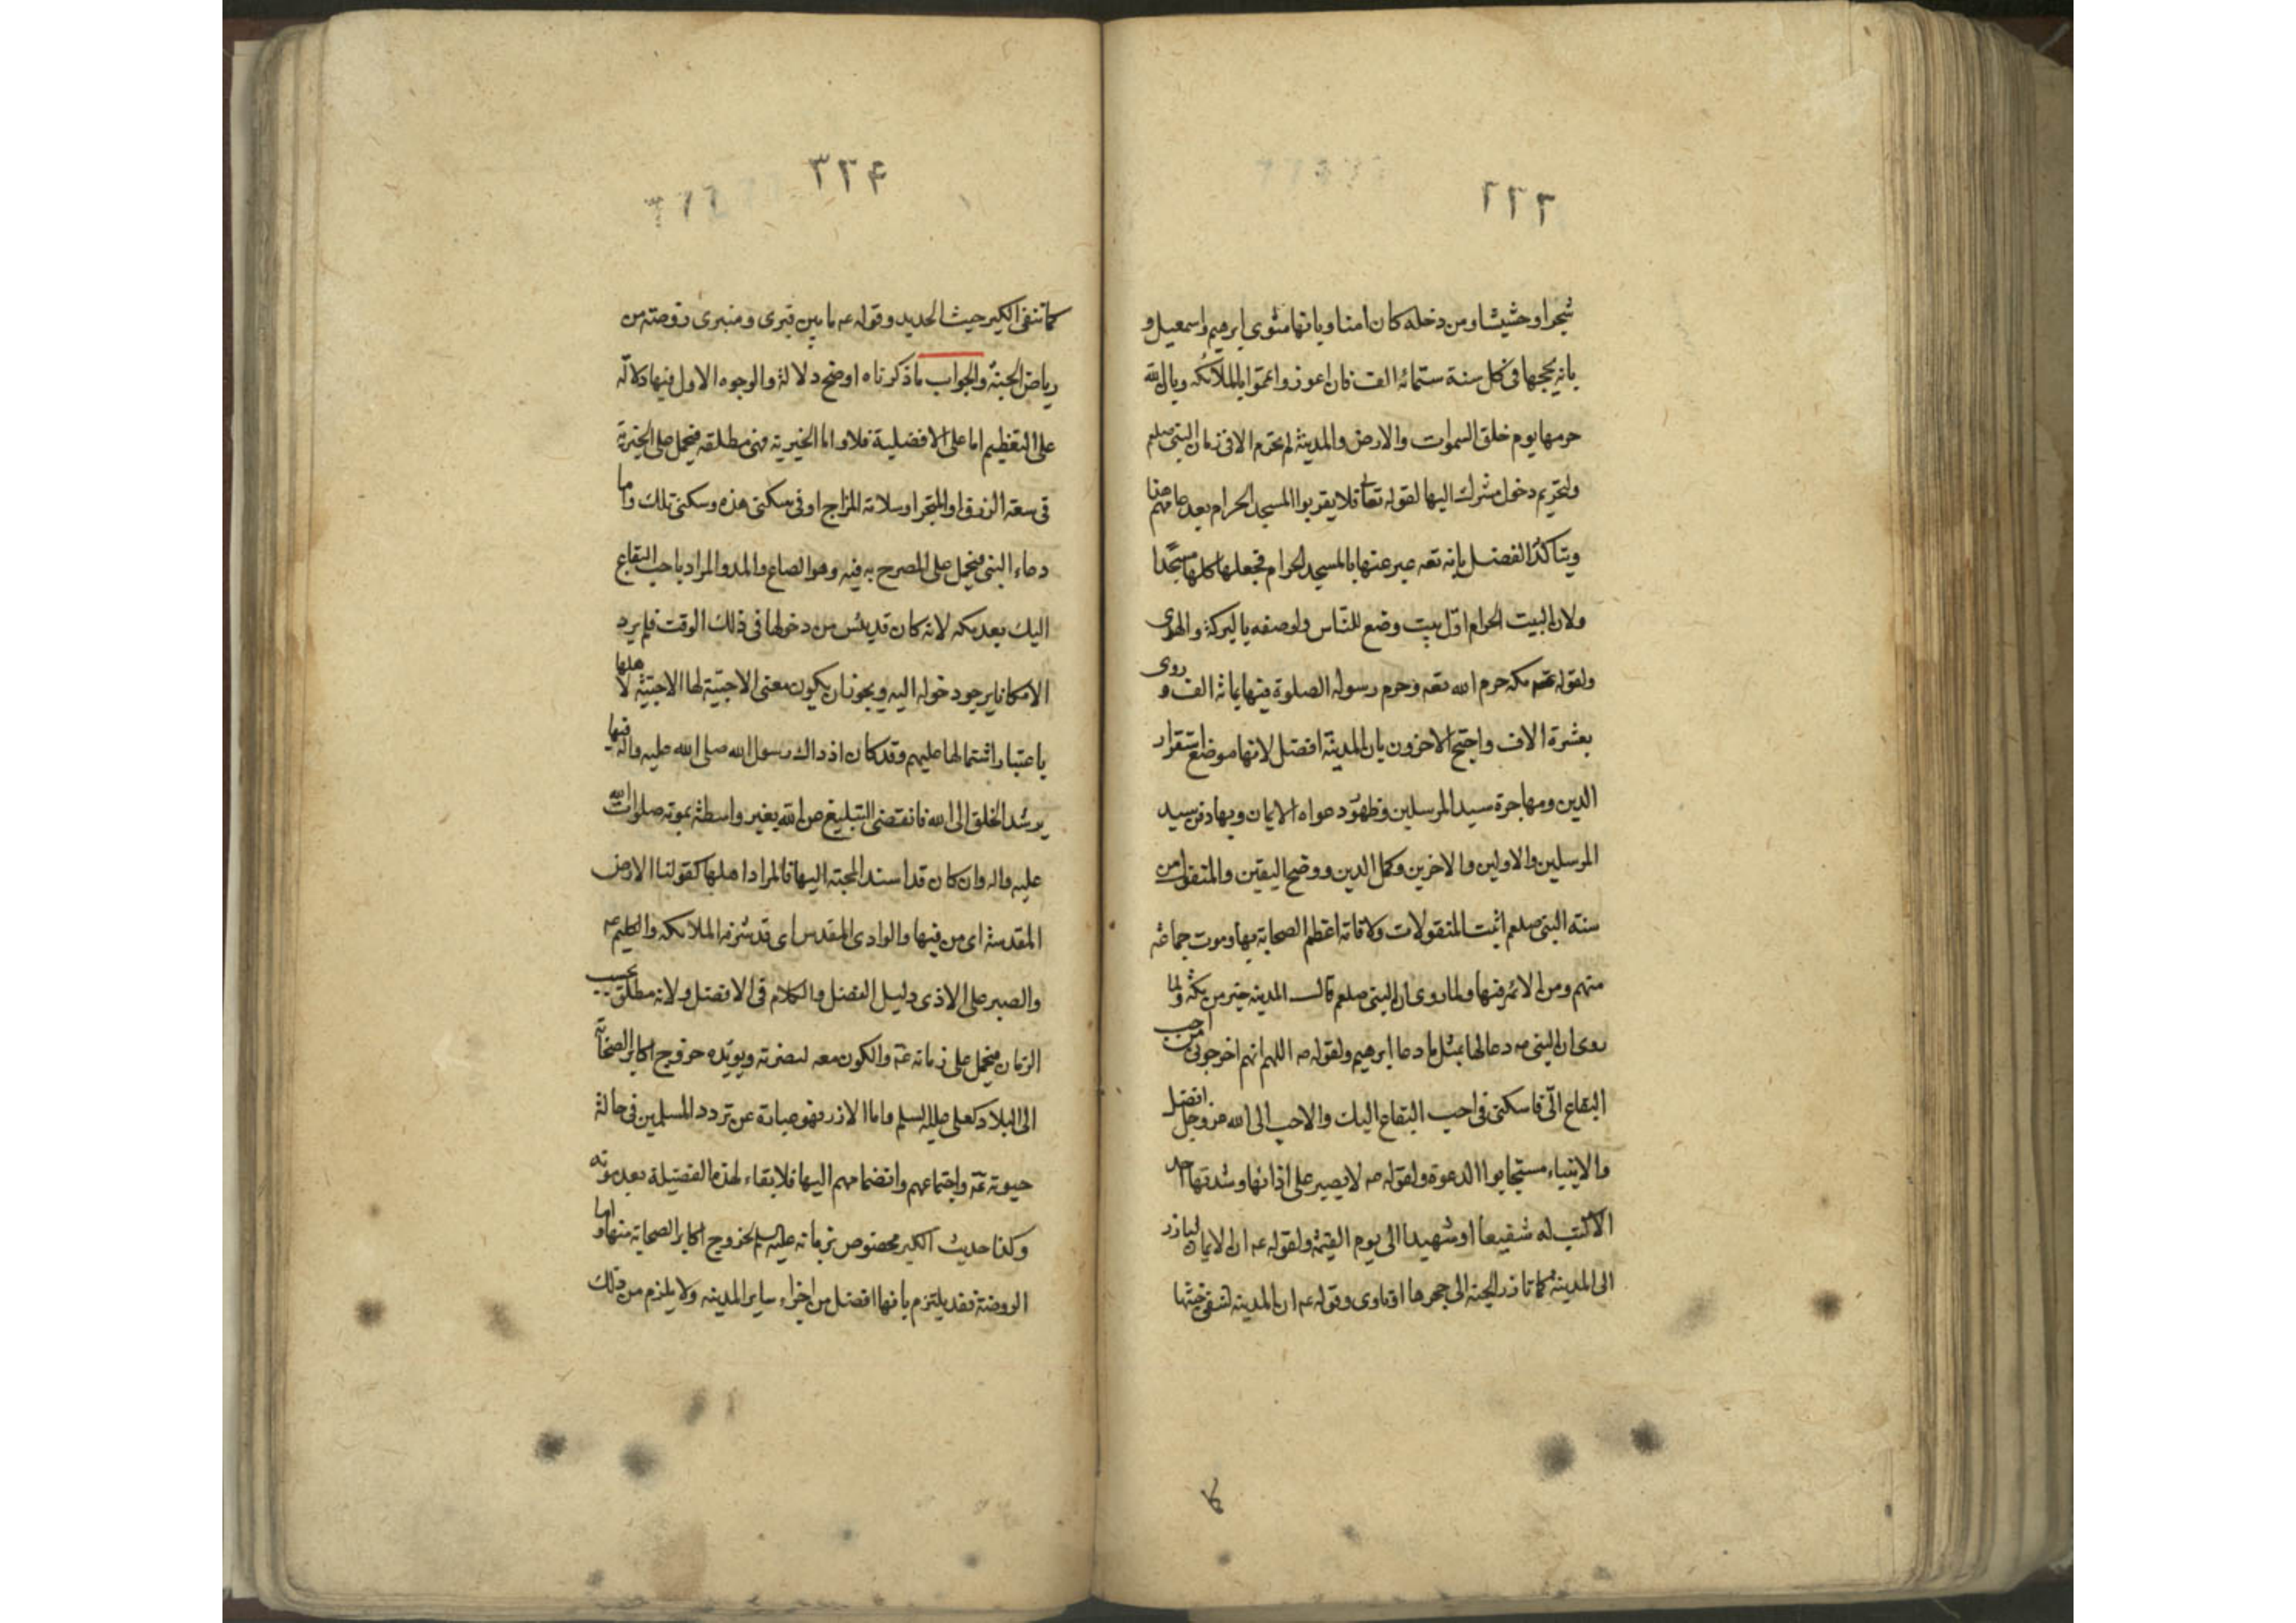 ٢٢٢
شجرا وحشيشا ومن دخله كان امنا وبانها مثوى ابرهيم واسمعيل و
بانه يحجها فى كل سنة ستمائه الف فان اعوز واعمّوا بالملائكه وبان الله
حرمها يوم خلق السموات والارض والمدينة لم تحرم الا فى زمان النبى صلعم
ولتحريم دخول مشرك اليها لقوله تعا فلا يقربوا المسجد الحرام بعد عامهم هذا
ويتاكد الفضل بانه تعه عبر عنها بالمسجد الحرام فجعلها كلها مسجدا
ولان البيت الحرام اول بيت وضع للناس ولوصفه بالبركة والهدى
ولقوله مكه حرم الله تعه وحرم رسوله الصلوة فيها بمائة الف و روى
بعشرة الاف واحتج الاخرون بان المدينة افضل لانها موضع استقرار
الدين ومهاجرة سيد المرسلين وظهور دعواه الايمان وبها دفن سيد
المرسلين والاولين والاخرين وكمل الدين ووضح اليقين والمنقول من
سنه النبى صلعم اثبت المنقولات ولاقامة اعظم الصحابة بها وموت جماعة
منهم ومن الائمه فيها ولما روى ان النبى صلعم قال المدينه خير من مكة ولما
روى ان النبى صه دعا لها بمثل ما دعا ابرهيم ولقوله صه اللهم انهم اخرجونى من احب
البقاع الىّ فاسكنى فى احب البقاع اليك والاحب الى الله عز وجل افضل
والانبياء مستجابوا الدعوة ولقوله صه لا يصبر على اذائها وشدتها احد
الا كنت له شفيعا او شهيدا الى يوم القيمة ولقوله عه ان الايمان ليارز
الى المدينة كما تارز الحية الى جحرها اى تاوى وقوله عه ان المدينه لتنفى خبثها
كا
٣٢۴
كما تنفى الكير خبث الحديد وقوله عه ما بين قبرى ومنبرى روضة من
رياض الجنة والجواب ما ذكرناه اوضح دلالة والوجوه الاول فيها دلالة
على التعظيم اما على الافضلية فلا واما الخيرية فهى مطلقه فيحمل على الخيرية
فى سعة الرزق او المتجر او سلامة المزاج او فى سكنى هذه وسكنى تلك واما
دعاء النبى فيحمل على المصرح به فيه وهو الصاع والمد والمراد باحب البقاع
اليك بعد مكه لانه كان قد يئس من دخولها فى ذلك الوقت فلم يرد
الا مكانا يرجو دخوله اليه ويجوز ان يكون معنى الاحبية لها الاحبية لاهلها
باعتبار اشتمالها عليهم وقد كان اذ ذاك رسول الله صلى الله عليه واله فيها
يرشد الخلق الى الله فانقضى التبليغ عن الله بغير واسطة بموته صلوات الله
عليه واله وان كان قد اسند المحبة اليها فالمراد اهلها كقولنا الارض
المقدسة اى من فيها والوادى المقدس اى قدسّ فيه الملائكه والكليم عه
والصبر على الاذى دليل الفضل والكلام فى الافضل ولانه مطلق بحسب
الزمان فيحمل على زمانه عه والكون معه لنصرته ويويّده خروج اكابر الصحابة
الى البلاد كعلى عليه السلم واما الارز فهو عبارة عن تردد المسلمين فى حالة
حيوته عه واجتماعهم وانضمامهم اليها فلا بقاء لهذه الفضيلة بعد موته
وكذا حديث الكير مخصوص بزمانه عليه السلم لخروج اكابر الصحابة منها واما
الروضة فقد يلتزم بانها افضل من اجزاء ساير المدينه ولا يلزم من ذلك